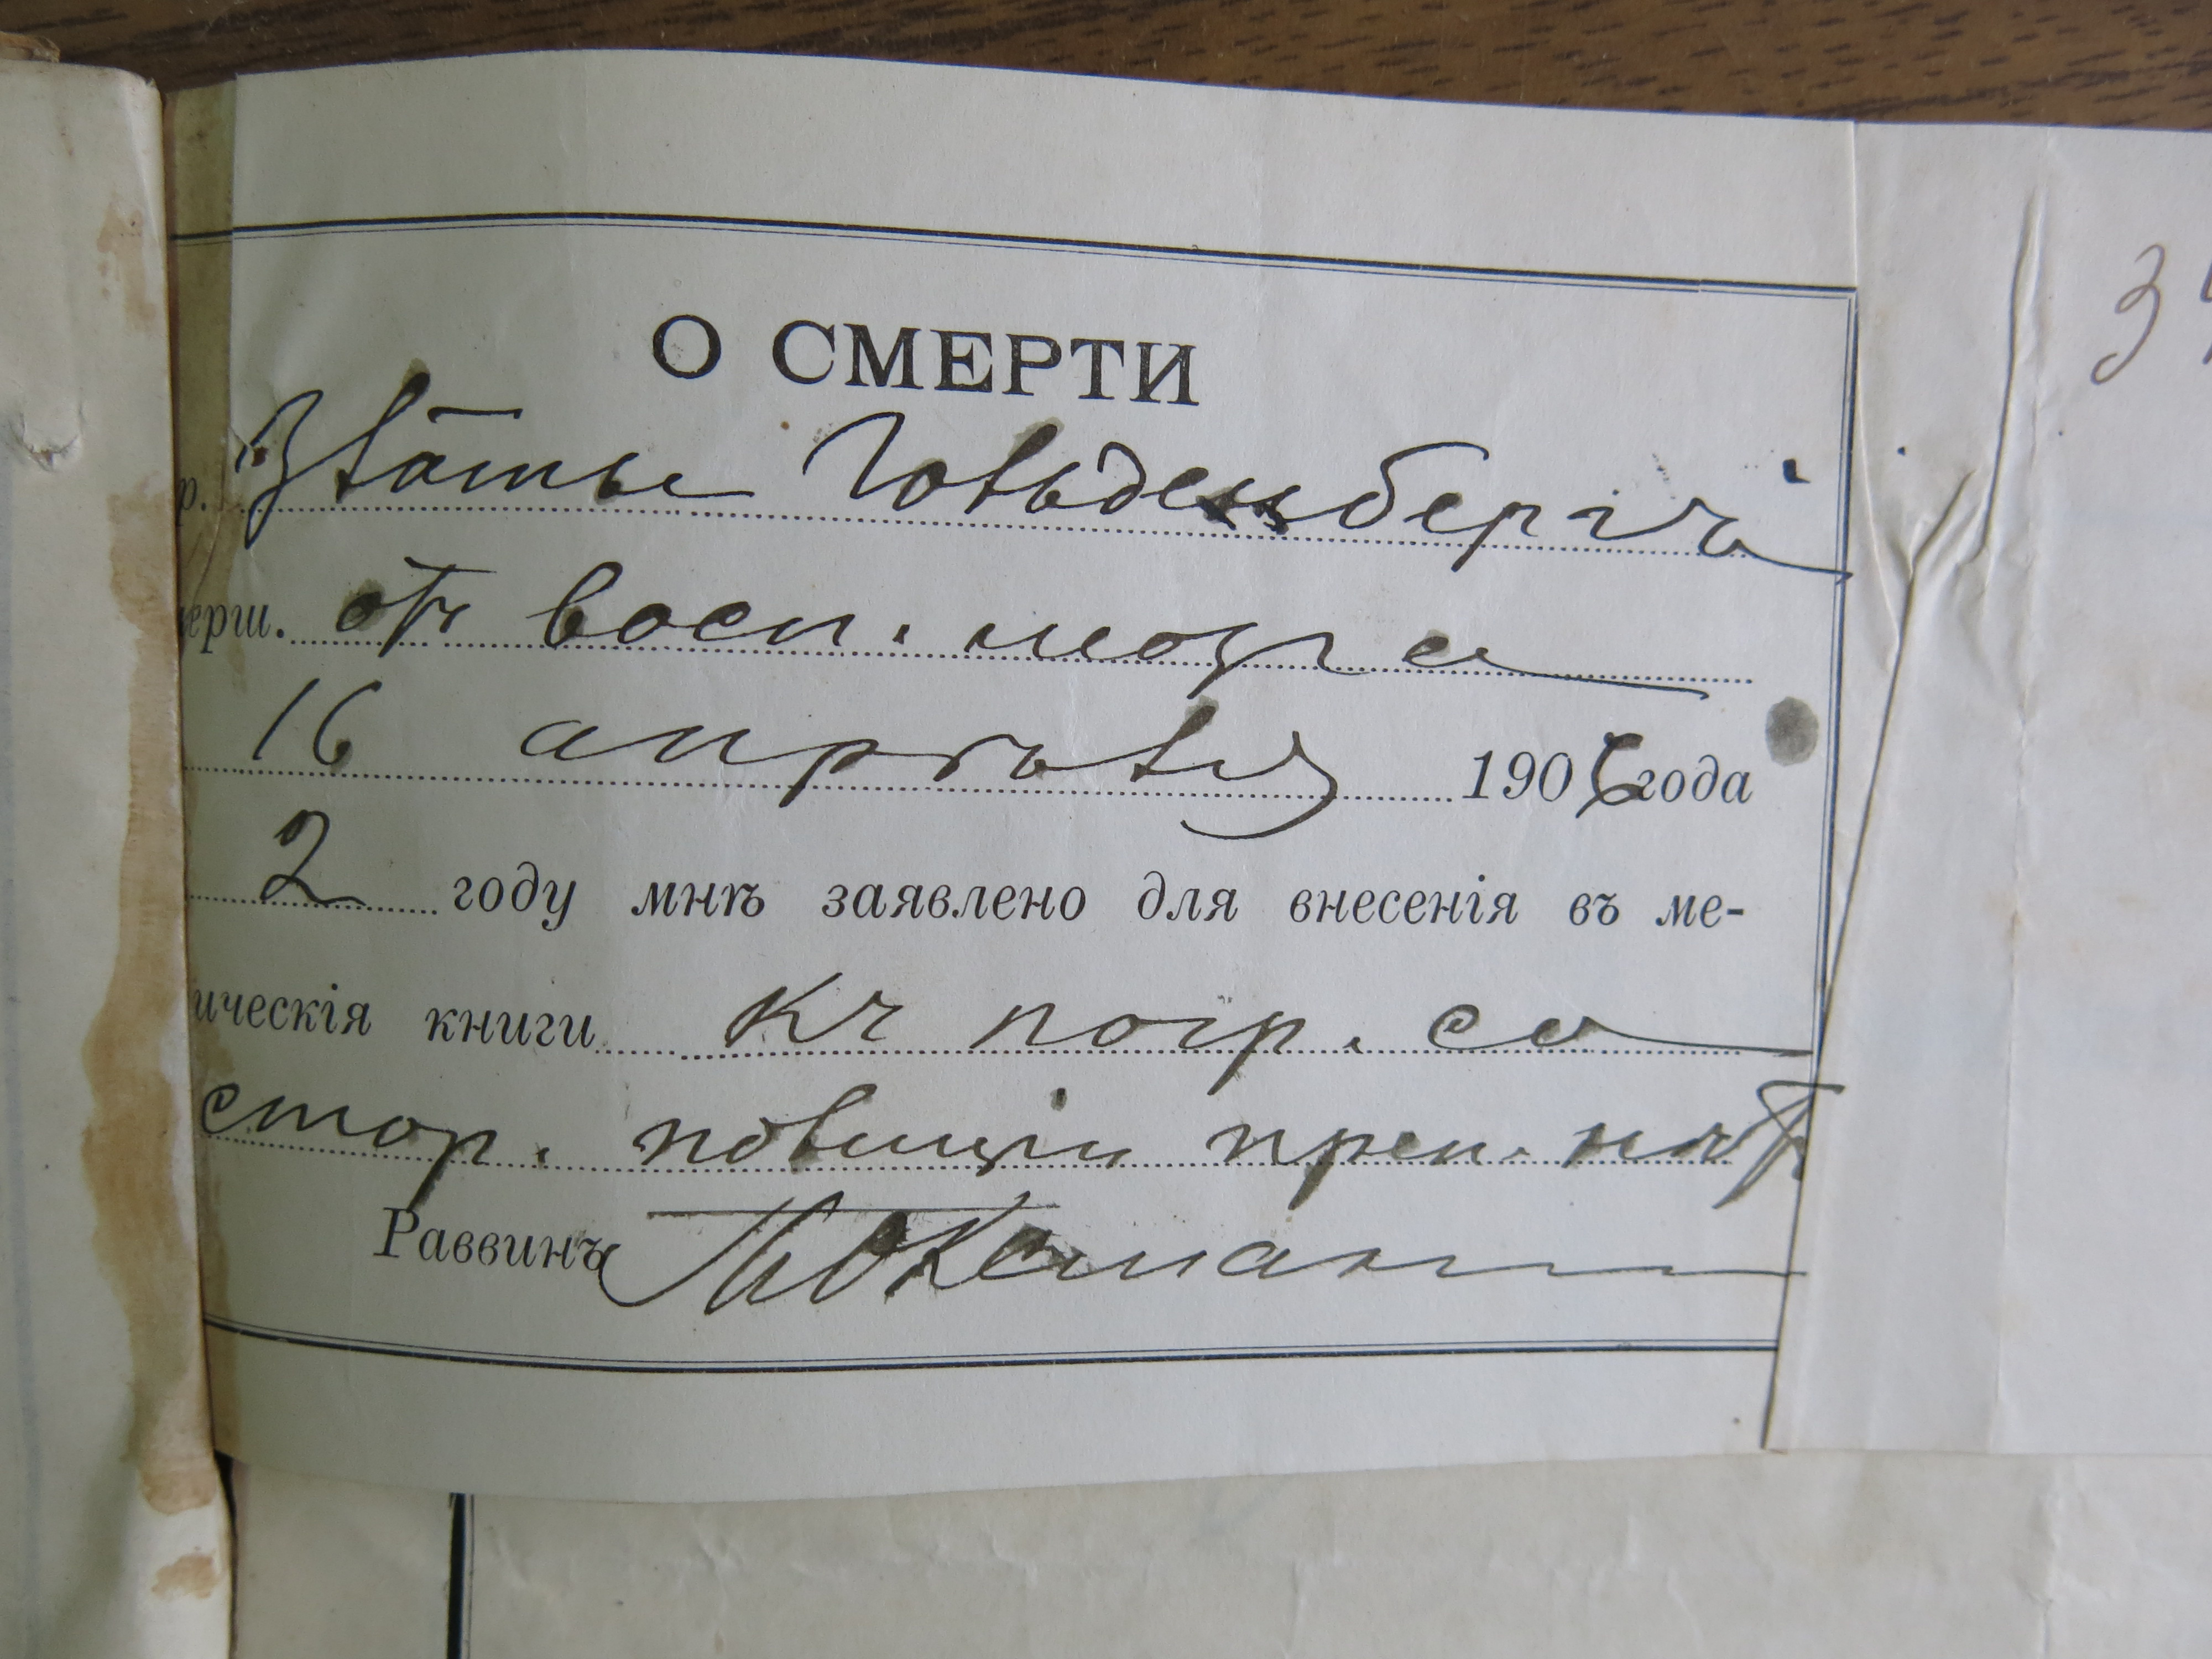 О СМЕРТИ
р. Златы Гольденбергъ
ерш. отъ восп. мозга
16 апрѣля 1906 года
2 году мнѣ заявлено для внесенія въ ме-
ическія книги къ погр. со
стор. полиціи преп. нѣтъ
Раввинъ
34